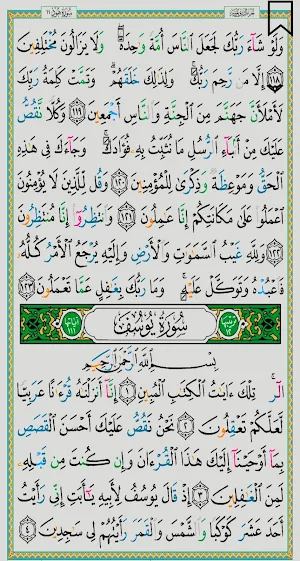 وَلَوْ شَآءَ رَبُّكَ لَجَعَلَ ٱلنَّاسَ أُمَّةً وَٰحِدَةً ۖ وَلَا يَزَالُونَ مُخْتَلِفِينَ
﴿١١٨﴾ إِلَّا مَن رَّحِمَ رَبُّكَ ۚ وَلِذَٰلِكَ خَلَقَهُمْ ۗ وَتَمَّتْ كَلِمَةُ رَبِّكَ
لَأَمْلَأَنَّ جَهَنَّمَ مِنَ ٱلْجِنَّةِ وَٱلنَّاسِ أَجْمَعِينَ ﴿١١٩﴾ وَكُلًّا نَّقُصُّ
عَلَيْكَ مِنْ أَنۢبَآءِ ٱلرُّسُلِ مَا نُثَبِّتُ بِهِۦ فُؤَادَكَ ۚ وَجَآءَكَ فِى هَٰذِهِ
ٱلْحَقُّ وَمَوْعِظَةٌ وَذِكْرَىٰ لِلْمُؤْمِنِينَ ﴿١٢٠﴾ وَقُل لِّلَّذِينَ لَا يُؤْمِنُونَ
ٱعْمَلُوا۟ عَلَىٰ مَكَانَتِكُمْ إِنَّا عَٰمِلُونَ ﴿١٢١﴾ وَٱنتَظِرُوٓا۟ إِنَّا مُنتَظِرُونَ
﴿١٢٢﴾ وَلِلَّهِ غَيْبُ ٱلسَّمَٰوَٰتِ وَٱلْأَرْضِ وَإِلَيْهِ يُرْجَعُ ٱلْأَمْرُ كُلُّهُۥ
فَٱعْبُدْهُ وَتَوَكَّلْ عَلَيْهِ ۚ وَمَا رَبُّكَ بِغَٰفِلٍ عَمَّا تَعْمَلُونَ ﴿١٢٣﴾
سُورَةُ يُوسُفَ
بِسْمِ ٱللَّهِ ٱلرَّحْمَٰنِ ٱلرَّحِيمِ
الٓر ۚ تِلْكَ ءَايَٰتُ ٱلْكِتَٰبِ ٱلْمُبِينِ ﴿١﴾ إِنَّآ أَنزَلْنَٰهُ قُرْءَٰنًا عَرَبِيًّا
لَّعَلَّكُمْ تَعْقِلُونَ ﴿٢﴾ نَحْنُ نَقُصُّ عَلَيْكَ أَحْسَنَ ٱلْقَصَصِ
بِمَآ أَوْحَيْنَآ إِلَيْكَ هَٰذَا ٱلْقُرْءَانَ وَإِن كُنتَ مِن قَبْلِهِۦ
لَمِنَ ٱلْغَٰفِلِينَ ﴿٣﴾ إِذْ قَالَ يُوسُفُ لِأَبِيهِ يَٰٓأَبَتِ إِنِّى رَأَيْتُ
أَحَدَ عَشَرَ كَوْكَبًا وَٱلشَّمْسَ وَٱلْقَمَرَ رَأَيْتُهُمْ لِى سَٰجِدِينَ ﴿٤﴾